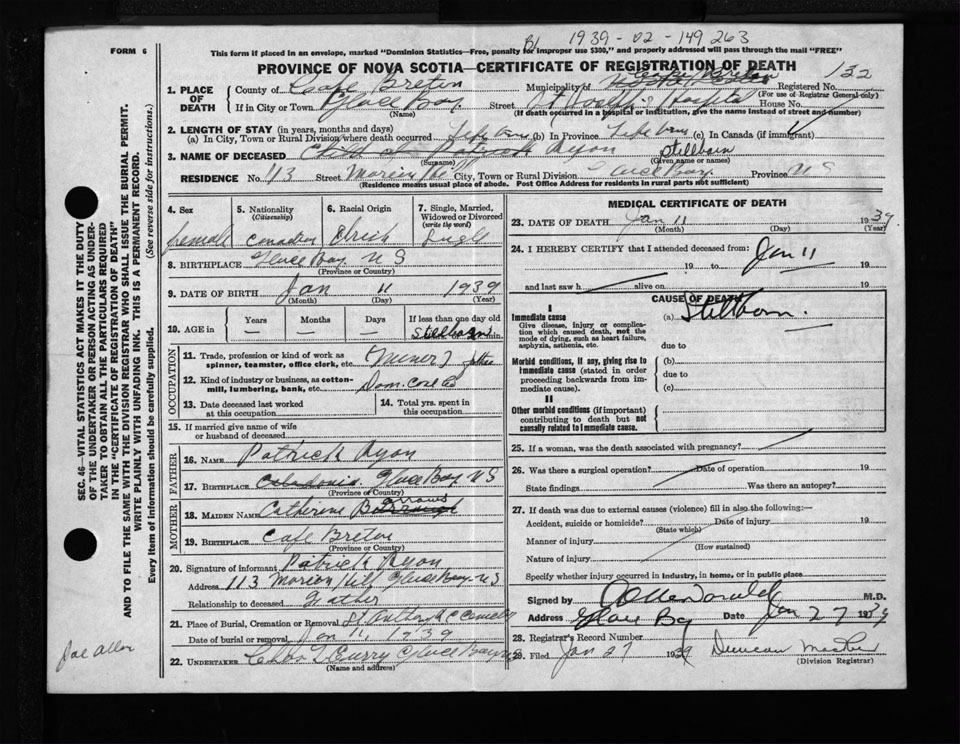 B/ 1939-02-149263
FORM 6
This form if placed in an envelope, marked "Dominion Statistics—Free, penalty for improper use $300," and properly addressed will pass through the mail "FREE"
PROVINCE OF NOVA SCOTIA—CERTIFICATE OF REGISTRATION OF DEATH
132
1. PLACE OF DEATH
County of Cape Breton Municipality of Cape Breton Registered No.
(For use of Registrar General only)
If in City or Town Glace Bay Street St Joseph's Hospital House No.
(Name) (If death occurred in a hospital or institution, give the name instead of street and number)
2. LENGTH OF STAY (in years, months and days)
(a) In City, Town or Rural Division where death occurred (b) In Province (c) In Canada (if immigrant)
3. NAME OF DECEASED Child of Patrick Ryan Stillborn
(Surname) (Given name or names)
RESIDENCE No. 113 Street City, Town or Rural Division Glace Bay Province N S
(Residence means usual place of abode. Post Office Address for residents in rural parts not sufficient)
4. Sex 5. Nationality (Citizenship) 6. Racial Origin 7. Single, Married, Widowed or Divorced (write the word)
female Canadian Irish Single
8. BIRTHPLACE Glace Bay N S
(Province or Country)
9. DATE OF BIRTH Jan 11 1939
(Month) (Day) (Year)
10. AGE in Years Months Days If less than one day old
— — — Stillborn min.
OCCUPATION
11. Trade, profession or kind of work as spinner, teamster, office clerk, etc. (Miner) father
12. Kind of industry or business, as cotton-mill, lumbering, bank, etc. Dom. Coal Co
13. Date deceased last worked at this occupation 14. Total yrs. spent in this occupation
15. If married give name of wife or husband of deceased
FATHER
16. NAME Patrick Ryan
17. BIRTHPLACE Caledonia Glace Bay N S
(Province or Country)
MOTHER
18. MAIDEN NAME Catherine
19. BIRTHPLACE Cape Breton
(Province or Country)
20. Signature of informant Patrick Ryan
Address 113 Hill Glace Bay N S
Relationship to deceased Father
21. Place of Burial, Cremation or Removal St Anthony
Date of burial or removal Jan 11, 1939
22. UNDERTAKER Chas Curry Glace Bay
(Name and address)
MEDICAL CERTIFICATE OF DEATH
23. DATE OF DEATH Jan 11 1939
(Month) (Day) (Year)
24. I HEREBY CERTIFY that I attended deceased from: Jan 11
19 to 19
and last saw h alive on 19
CAUSE OF DEATH
I
Immediate cause (a) Stillborn.
Give disease, injury or complication which caused death, not the mode of dying, such as heart failure, asphyxia, asthenia, etc.
due to
Morbid conditions, if any, giving rise to immediate cause (stated in order proceeding backwards from immediate cause). (b)
due to
(c)
II
Other morbid conditions (if important) contributing to death but not causally related to immediate cause.
25. If a woman, was the death associated with pregnancy?
26. Was there a surgical operation? Date of operation 19
State findings Was there an autopsy?
27. If death was due to external causes (violence) fill in also the following:—
Accident, suicide or homicide? Date of injury 19
(State which)
Manner of injury
(How sustained)
Nature of injury
Specify whether injury occurred in industry, in home, or in public place
Signed by M.D.
Address Glace Bay Date Jan 27 1939
28. Registrar's Record Number
29. Filed Jan 27 1939 Duncan
(Division Registrar)
SEC. 46—VITAL STATISTICS ACT MAKES IT THE DUTY
OF THE UNDERTAKER OR PERSON ACTING AS UNDER-
TAKER TO OBTAIN ALL THE PARTICULARS REQUIRED
IN THE "CERTIFICATE OF REGISTRATION OF DEATH"
AND TO FILE THE SAME WITH THE DIVISION REGISTRAR WHO SHALL ISSUE THE BURIAL PERMIT.
WRITE PLAINLY WITH UNFADING INK. THIS IS A PERMANENT RECORD.
Every item of information should be carefully supplied. (See reverse side for instructions.)